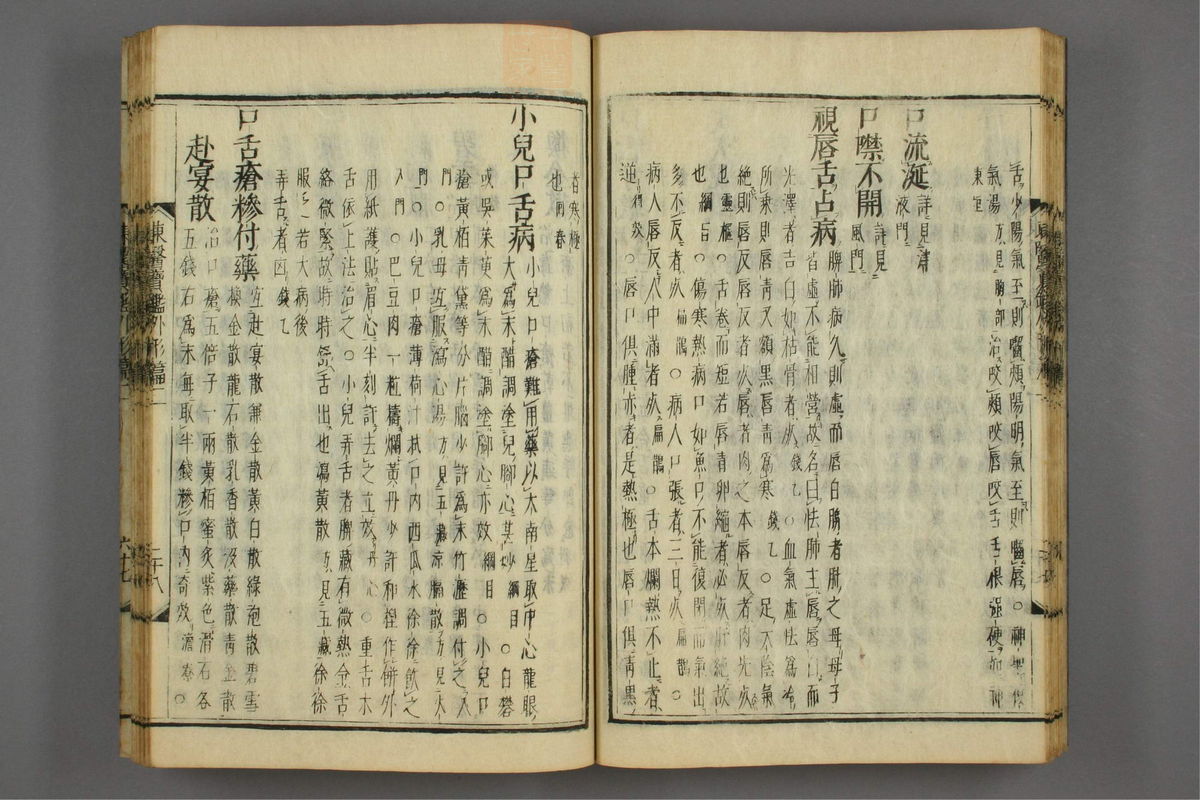 舌少陽氣至則囓頰陽明氣至則囓唇○神聖復
氣湯方見胸部治咬頰咬唇咬舌舌根強硬如神
東垣
口流涎詳見津液門
口噤不開詳見風門
視唇舌占病脾肺病久則虛而唇白脾者肺之母母子
皆虛不能相營故名曰怯肺主唇唇白而
光澤者吉白如枯骨者死錢乙○血氣虛怯爲冷
所乘則唇靑又額黑唇靑爲寒錢乙○足太陰氣
絶則唇反唇反者死唇者肉之本唇反者肉先死
也靈樞○舌卷而短若唇靑卵縮者必死肝絶故
也綱目○傷寒熱病口如魚口不能復閉而氣出
多不反者死扁鵲○病人口張者三日死扁鵲○
病人唇反人中滿者死扁鵲○舌本爛熱不止者
逆得效○唇口俱腫赤者是熱極也唇口俱靑黑
者寒極
也回春
小兒口舌病小兒口瘡難用藥以大南星取中心龍眼
大爲末醋調塗兒脚心甚妙綱目○白礬
或吳茱萸爲末醋調塗脚心亦效綱目○小兒口
瘡黃栢靑黛等分片腦少許爲末竹瀝調付之入
門○乳母宜服瀉心湯方見五藏凉膈散方見大
門○小兒口瘡薄荷汁拭口內西瓜水徐徐飮之
入門○巴豆肉一粒擣爛黃丹少許和捏作餠外
用紙護貼眉心半刻許去之立效丹心○重舌木
舌依上法治之○小兒弄舌者脾藏有微熱令舌
絡微緊故時時舒舌出也瀉黃散方見五藏徐徐
服之若大病後
弄舌者凶錢乙
口舌瘡糝付藥宜赴宴散兼金散黃白散綠袍散碧雪
換金散龍石散乳香散沒藥散靑金散
赴宴散治口瘡五倍子一兩黃栢蜜炙紫色滑石各
五錢右爲末每取半錢糝口內奇效澹寮○
東醫寶鑑外形篇二
二十八